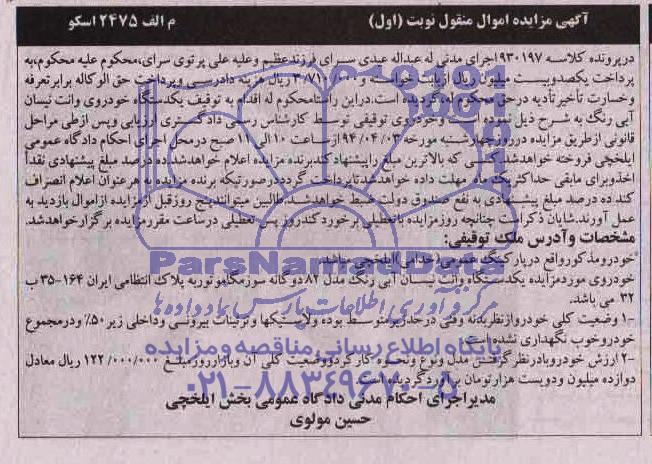 آگهی مزایده اموال منقول نوبت (اول) م الف ۲۴۷۵ اسکو
درپرونده کلاسه ۹۳۰۱۹۷اجرای مدنی له عبداله عبدی سرای فرزندعظیم وعلیه علی پرتوی سرای،محکوم علیه محکوم،به
پرداخت یکصدوبیست میلیون ریال ازبابت خواسته و ریال هزینه دادرسی وپرداخت حق الوکاله برابرتعرفه
وخسارت تأخیرتأدیه درحق محکوم له،گردیده است.دراین راستامحکوم له اقدام به توقیف یکدستگاه خودروی وانت نیسان
آبی رنگ به شرح ذیل نموده است.وخودروی توقیفی توسط کارشناس رسمی دادگستری ارزیابی وپس ازطی مراحل
قانونی ازطریق مزایده درروزچهارشنبه مورخه ۹۴/۰۴/۰۳ ازساعت ۱۰ الی ۱۱ صبح درمحل اجرای احکام دادگاه عمومی
ایلخچی فروخته خواهدشد.کسی که بالاترین مبلغ راپیشنهاد کندبرنده مزایده اعلام خواهدشد.ده درصد مبلغ پیشنهادی نقداً
اخذوبرای مابقی حداکثریک ماه مهلت داده خواهدشدتاپرداخت گردد.درصورتیکه برنده مزایده به هرعنوان اعلام انصراف
کند،ده درصد مبلغ پیشنهادی به نفع صندوق دولت ضبط خواهدشد.طالبین میتوانندپنج روزقبل ازمزایده ازاموال بازدید به
عمل آورند.شایان ذکراست چنانچه روزمزایده باتعطیلی برخورد کندروز پس تعطیلی درساعت مقررمزایده برگزارخواهدشد.
مشخصات وآدرس ملک توقیفی:
خودرومذکورواقع درپارکینگ عمومی(خدامی)ایلخچی میباشد.
خودروی موردمزایده یکدستگاه وانت نیسان آبی رنگ مدل ۸۲ دوگانه سوزمگاموتوربه پلاک انتظامی ایران ۱۶۴-۳۵ ب
۳۲ می باشد.
۱- وضعیت کلی خودروازنظربدنه وفنی درحدزیرمتوسط بوده ولاستیکها وتزئینات بیرونی وداخلی زیر۵۰٪ ودرمجموع
خودروخوب نگهداری نشده است.
۲- ارزش خودروبادرنظرگرفتن مدل ونوع ونحوه کارکردووضعیت کلی آن وبازارروزمبلغ ۱۲۲/۰۰۰/۰۰۰ ریال معادل
دوازده میلیون ودویست هزارتومان برآوردگردیده است.
مدیراجرای احکام مدنی دادگاه عمومی بخش ایلخچی
حسین مولوی
ParsNamadData
مرکز فرآوری اطلاعات پارس نماد داده ها
پایگاه اطلاع رسانی مناقصه و مزایده
۰۲۱-۸۸۳۴۹۶۷۰-۵